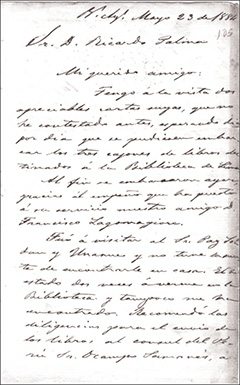 Bs. Ays. Mayo 23 de 1884
185
Sr. D. Ricardo Palma
Mi querido amigo:
Tengo á la vista dos
apreciables cartas suyas, que no
he contestado antes, esperando dia
por dia que se pudiesen embar
car los tres cajones de libros des
tinados á la Biblioteca de Lima
Al fin se embarcaron ayer
gracias al empeño que ha puesto
á su servicio nuestro amigo D.
Francisco Lagomarsino.
Fuí á visitar al Sr. Paz Sol
dan y Unanue y no tuve
de encontrarle en casa. El ha
estado dos veces á verme en la
Biblioteca y tampoco me ha
encontrado. Recomendó las
diligencias para el envio de
los libros al consul del Pe
rú Sr. Ocampo